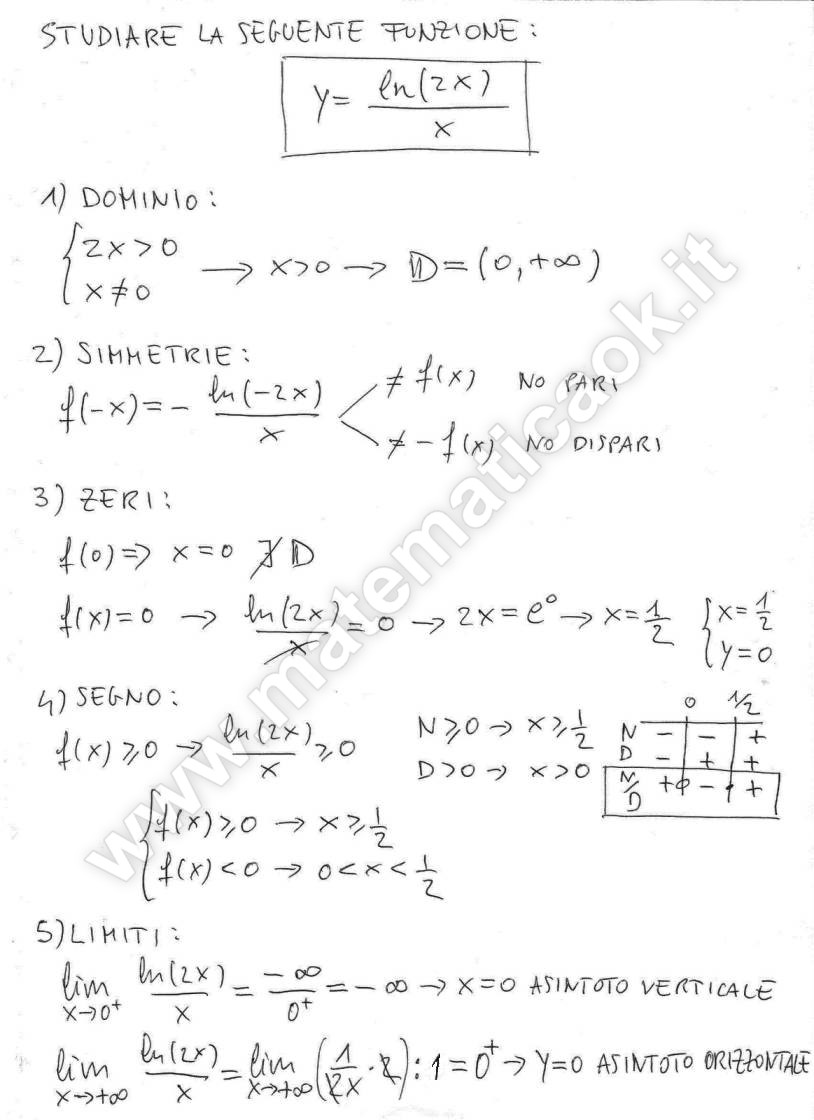 STUDIARE LA SEGUENTE FUNZIONE:
y = ln(2x)/x
1) DOMINIO:
{2x>0
{x≠0 → x>0 → D=(0,+∞)
2) SIMMETRIE:
f(-x) = - ln(-2x)/x
≠ f(x) NO PARI
≠ -f(x) NO DISPARI
3) ZERI:
f(0) ⇒ x=0 ∄ D
f(x)=0 → ln(2x)/x = 0 → 2x=e⁰ → x=1/2 {x=1/2
{y=0
4) SEGNO:
f(x)≥0 → ln(2x)/x ≥0
N≥0 → x≥1/2
D>0 → x>0
0 1/2
N - - +
D - + +
N/D + - +
{f(x)≥0 → x≥1/2
{f(x)<0 → 0<x<1/2
5) LIMITI:
lim x→0⁺ ln(2x)/x = -∞/0⁺ = -∞ → x=0 ASINTOTO VERTICALE
lim x→+∞ ln(2x)/x = lim x→+∞ (1/2x · 2) : 1 = 0⁺ → y=0 ASINTOTO ORIZZONTALE
www.matematicaok.it